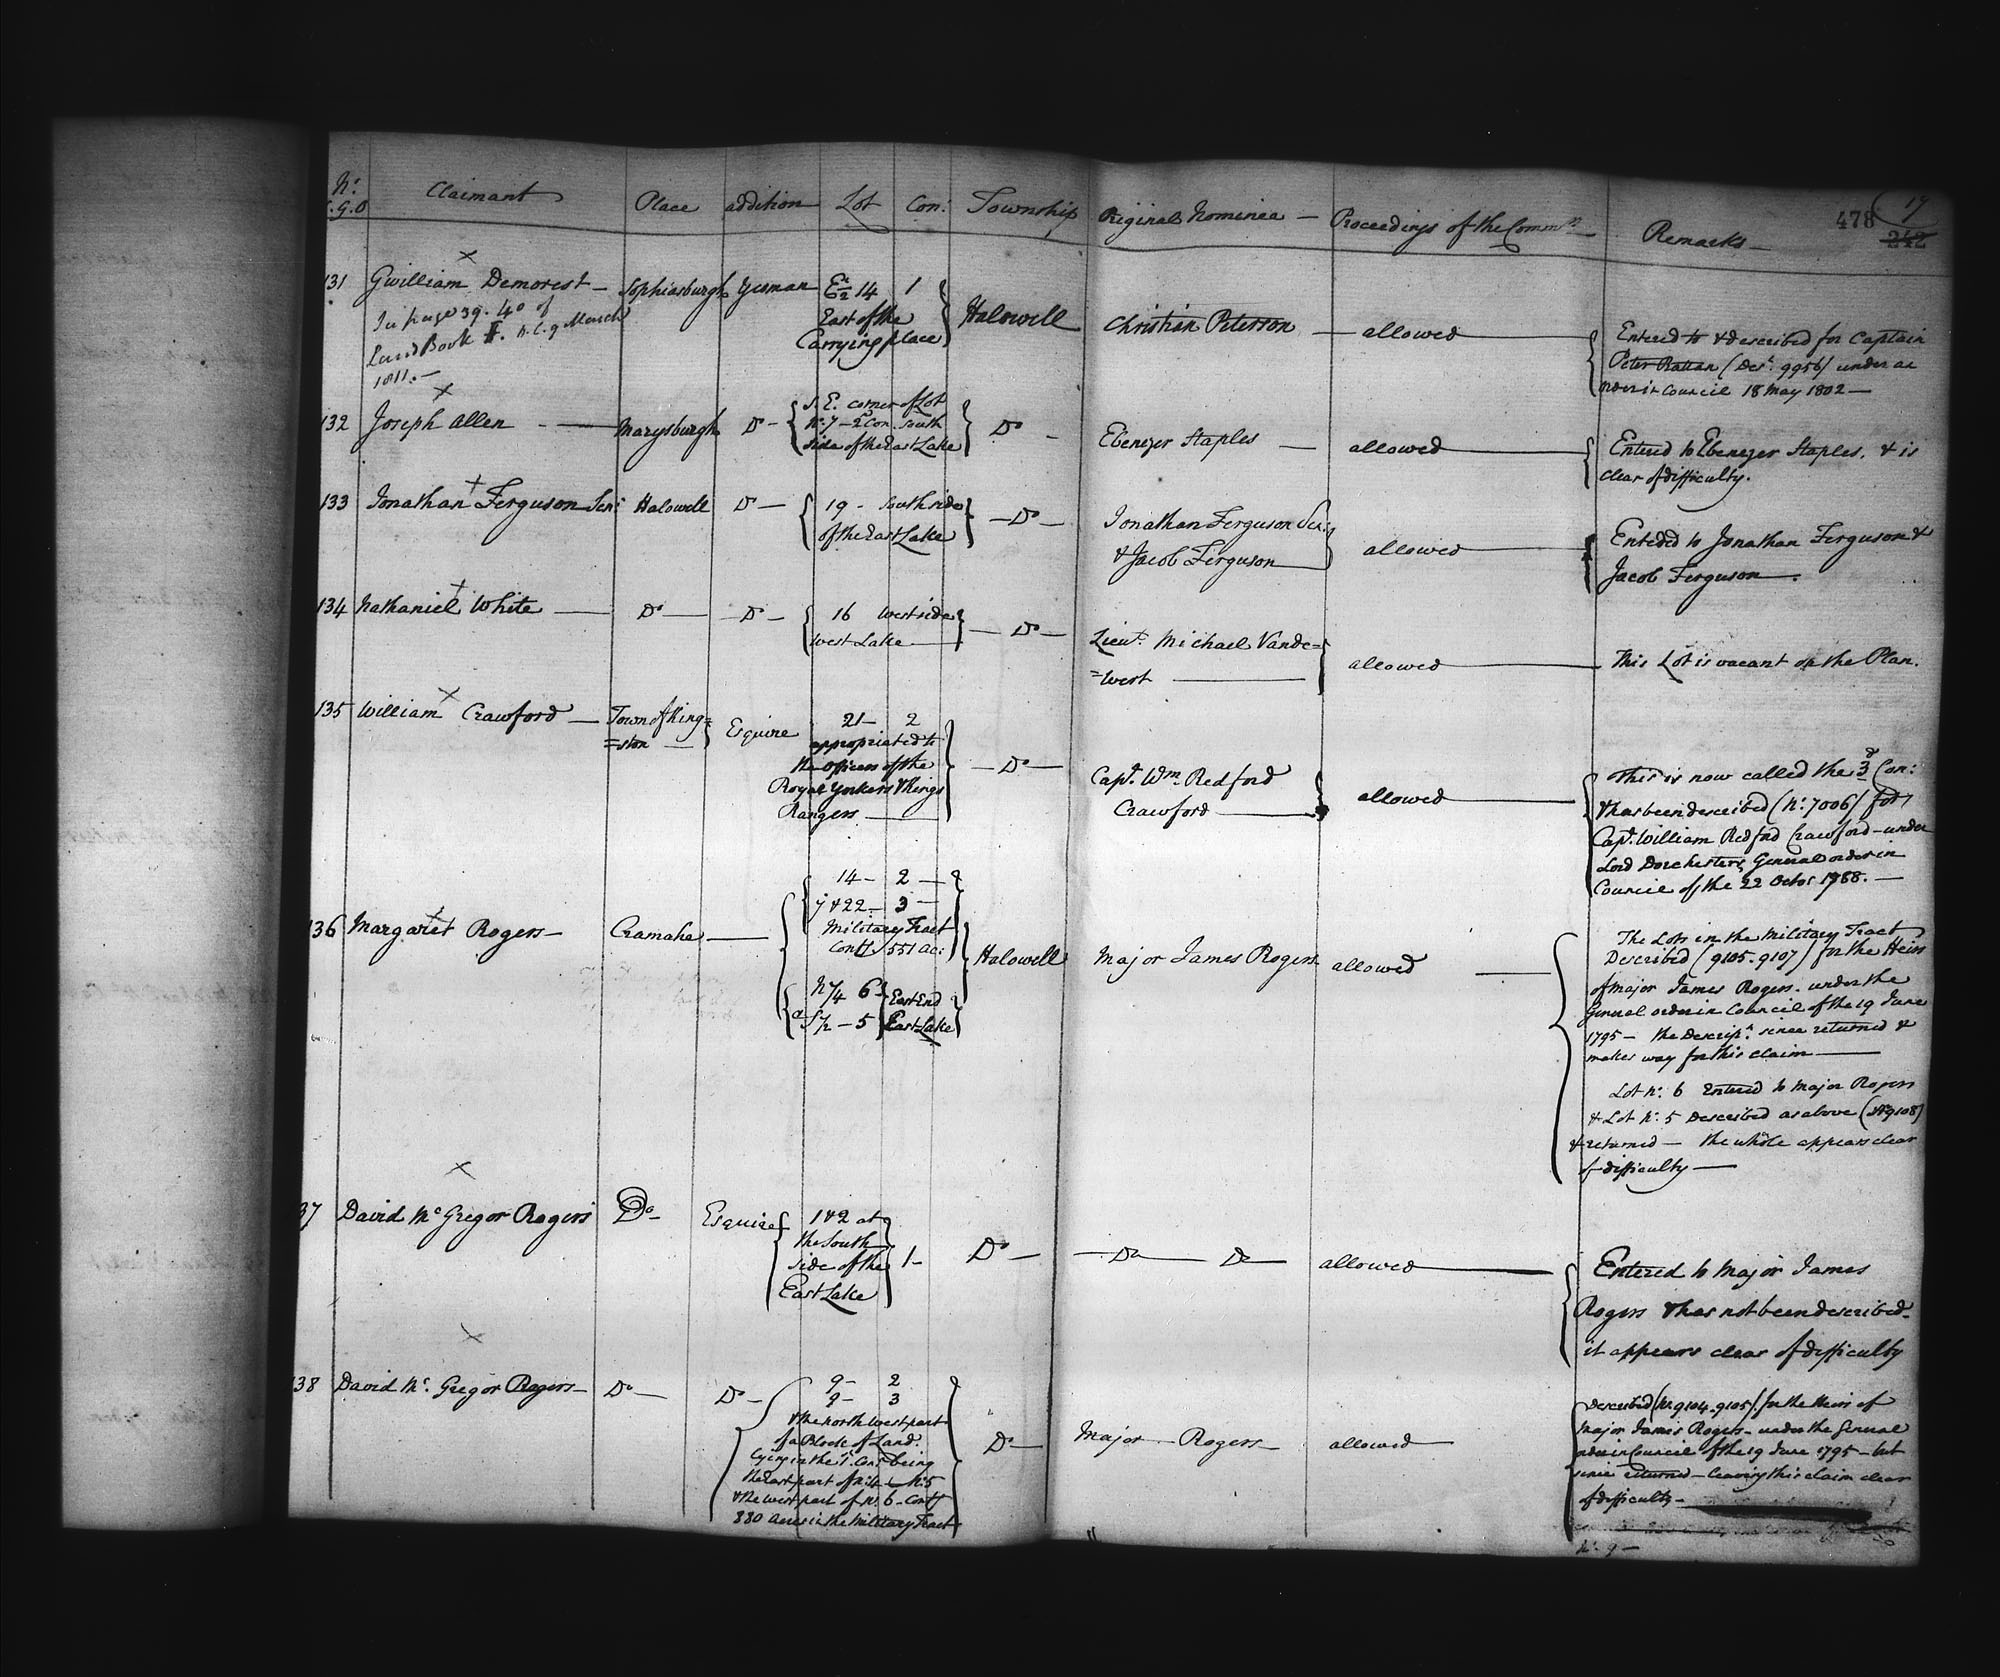 No. Claimant Place addition Lot Con: Township Original Nominee — Proceedings of the Commrs Remarks — 478 19
S.G.O 242
131 Gwilliam Demorest — Sophiasburgh Yeoman E ½ 14 1
East of the
Carrying place
Halowell Christian Peterson — allowed
In page 39. 40 of
Land Book I. D.C. 9 March
1811. —
Entered to & described for Captain
Peter Rattan (Desn. 9956) under an
order in Council 18 May 1802 —
132 Joseph Allen — Marysburgh Do —
S. E. corner of Lot
No. 7 - 2d Con. South
side of the East Lake
Do — Ebenezer Staples — allowed
Entered to Ebenezer Staples, & is
clear of difficulty.
133 Jonathan Ferguson Senr: Halowell Do —
19 - South side
of the East Lake
— Do — Jonathan Ferguson Senr:
& Jacob Ferguson
allowed
Entered to Jonathan Ferguson &
Jacob Ferguson —.
134 Nathaniel White — Do — — Do —
16 West side
West Lake
— Do — Lieut. Michael Vande=
=west —
allowed — This Lot is vacant on the Plan.
135 William Crawford — Town of King=
=ston —
Esquire 21 — 2
appropriated to
the Officers of the
Royal Yorkers & Kings
Rangers —
— Do — Capt. Wm. Redford
Crawford —
allowed
This is now called the 3d Con:
& has been described (No. 7006) for
Capt. William Redford Crawford — under
Lord Dorchesters General order in
Council of the 22 Octor 1788. —
136 Margaret Rogers — Cramahe —
14 — 2 —
7 & 22 — 3 —
Military Tract
Contg 551 ac:
N ¼ 6 &
S ½ — 5
East End
East Lake
Halowell Major James Rogers allowed
The Lots in the Military Tract
Described (9105. 9107) for the Heirs
of Major James Rogers. under the
General order in Council of the 19 June
1795 — the Descripn. since returned &
makes way for this claim —
Lot No. 6 Entered to Major Rogers
& Lot No. 5 Described as above (No 9108)
& returned — the whole appears clear
of difficulty —
37 David McGregor Rogers Do — Esquire
1 & 2 at
the South
side of the
East Lake
1 —
Do — — Do — Do — allowed
Entered to Major James
Rogers & has not been described —
it appears clear of difficulty
38 David Mc. Gregor Rogers — Do — Do —
9 — 2
9 — 3
& the north west part
of a Block of Land.
Lying in the 1st. Con: being
the East part of No. 5
& the west part of No. 6 — Contg
880 Acres in the Military Tract
Do — Major Rogers — allowed
Described (No. 9104. 9105) for the Heirs of
Major James Rogers — under the General
order in Council of the 19 June 1795 — but
since returned — leaving this claim clear
of difficulty —
No. 9 —